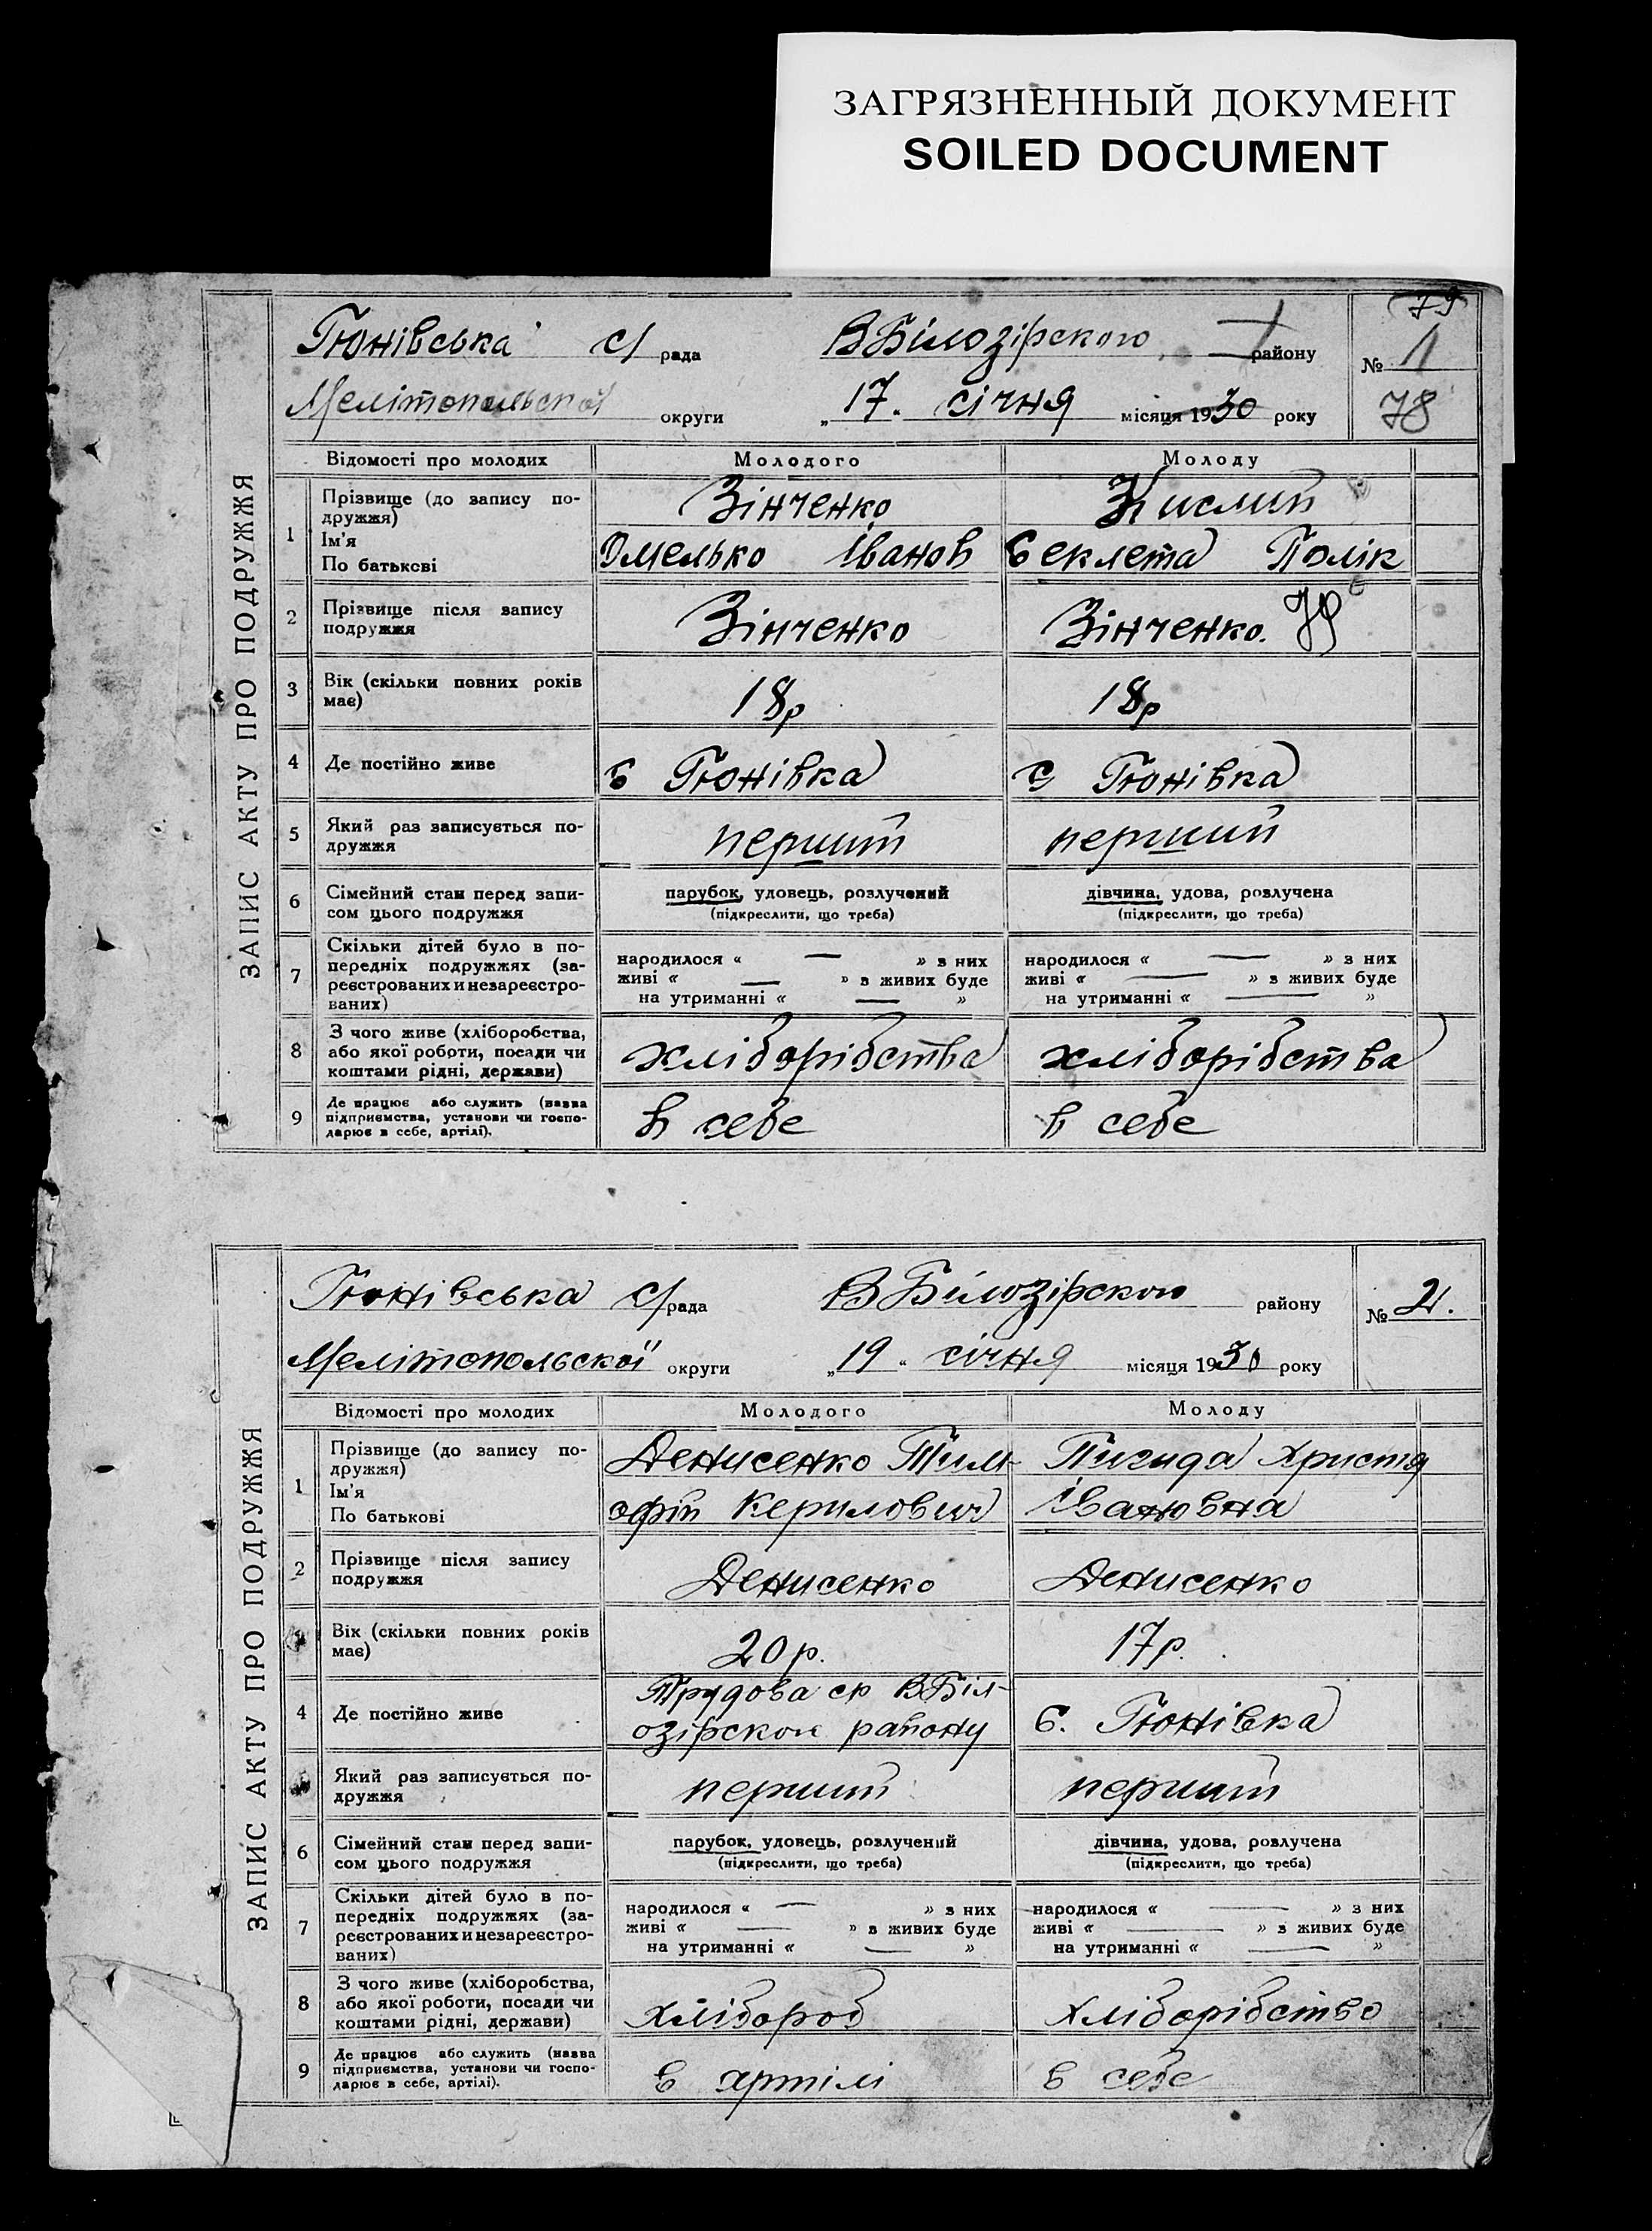 ЗАГРЯЗНЕННЫЙ ДОКУМЕНТ
SOILED DOCUMENT
79
Гюнівська с/ рада ВБілозірского району № 1
Мелітопольської округи „17" січня місяця 1930 року 78
ЗАПИС АКТУ ПРО ПОДРУЖЖЯ
Відомості про молодих Молодого Молоду
1 Прізвище (до запису по-
дружжя) Зінченко Кислий
Ім'я
По батькові Омелько Іванов Секлета Полік
2 Прізвище після запису
подружжя Зінченко Зінченко. 79
3 Вік (скільки повних років
має) 18р 18р
4 Де постійно живе с Гюнівка с Гюнівка
5 Який раз записується по-
дружжя перший перший
6 Сімейний стан перед запи-
сом цього подружжя
парубок, удовець, розлучений дівчина, удова, розлучена
(підкреслити, що треба) (підкреслити, що треба)
7 Скільки дітей було в по-
передніх подружжях (за-
реєстрованих и незареєстро-
ваних)
народилося « — » з них народилося « — » з них
живі « — » з живих буде живі « — » з живих буде
на утриманні « — » на утриманні « — »
8 З чого живе (хліборобства,
або якої роботи, посади чи
коштами рідні, держави) хліборібства хліборібства
9 Де працює або служить (назва
підприємства, установи чи госпо-
дарює в себе, артілі). в себе в себе
Гюнівська с/рада ВБілозірского району № 2.
Мелітопольської округи „19" січня місяця 1930 року
ЗАПИС АКТУ ПРО ПОДРУЖЖЯ
Відомості про молодих Молодого Молоду
1 Прізвище (до запису по-
дружжя) Денисенко Тим- Пигида Христя
Ім'я
По батькові офій Керилович Івановна
2 Прізвище після запису
подружжя Денисенко Денисенко
3 Вік (скільки повних років
має) 20р. 17р.
4 Де постійно живе Трудова ср ВБіл-
озірского району с. Гюнівка
Який раз записується по-
дружжя перший перший
6 Сімейний стан перед запи-
сом цього подружжя
парубок, удовець, розлучений дівчина, удова, розлучена
(підкреслити, що треба) (підкреслити, що треба)
7 Скільки дітей було в по-
передніх подружжях (за-
реєстрованих и незареєстро-
ваних)
народилося « — » з них народилося « — » з них
живі « — » з живих буде живі « — » з живих буде
на утриманні « — » на утриманні « — »
8 З чого живе (хліборобства,
або якої роботи, посади чи
коштами рідні, держави) хлібороб хліборібство
9 Де працює або служить (назва
підприємства, установи чи госпо-
дарює в себе, артілі). в артілі в себе